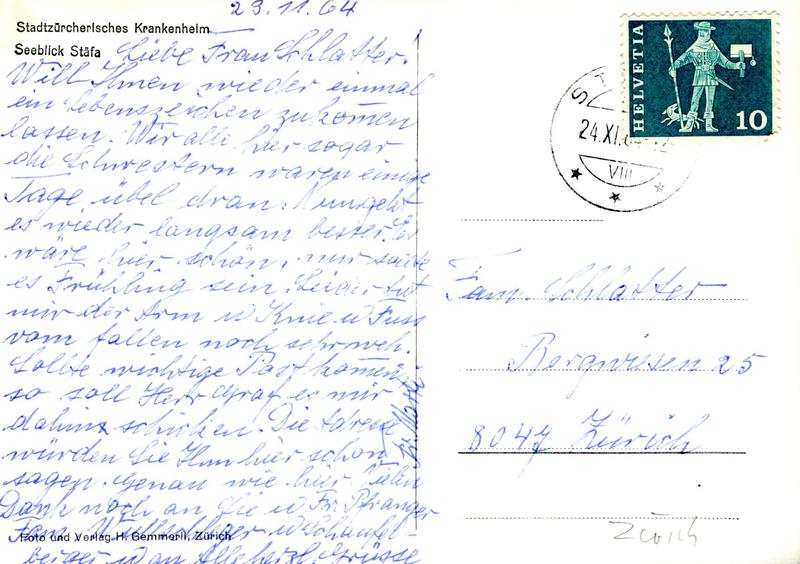 23.11.64
Stadtzürcherisches Krankenheim
Seeblick Stäfa
Liebe Frau Schlatter.
Will Ihnen wieder einmal
ein Lebenszeichen zukom̄en
lassen. Wir alle hier sogar
die Schwestern waren einige
Tage übel dran. Nun geht
es wieder langsam besser. Es
wäre hier schön, nur sollte
es Frühling sein. Leider tut
mir der Arm u Knie u Fuss
vom fallen noch sehr weh.
Sollte wichtige Post kom̄en
so soll Herr Graf es mir
dahin schicken. Die Adresse
würden Sie Ihm hier schon
sagen. Genau wie hier. Vielen
Dank noch an Sie u Fr. Pfranger
Fam. Wullschleger u Schaufel-
berger u an Alle herzl. Grüsse
Foto und Verlag H. Gemmerli, Zürich
HELVETIA
10
24.XI.64
VIII
Fam. Schlatter
Bergwiesen 25
8047 Zürich
Zürich